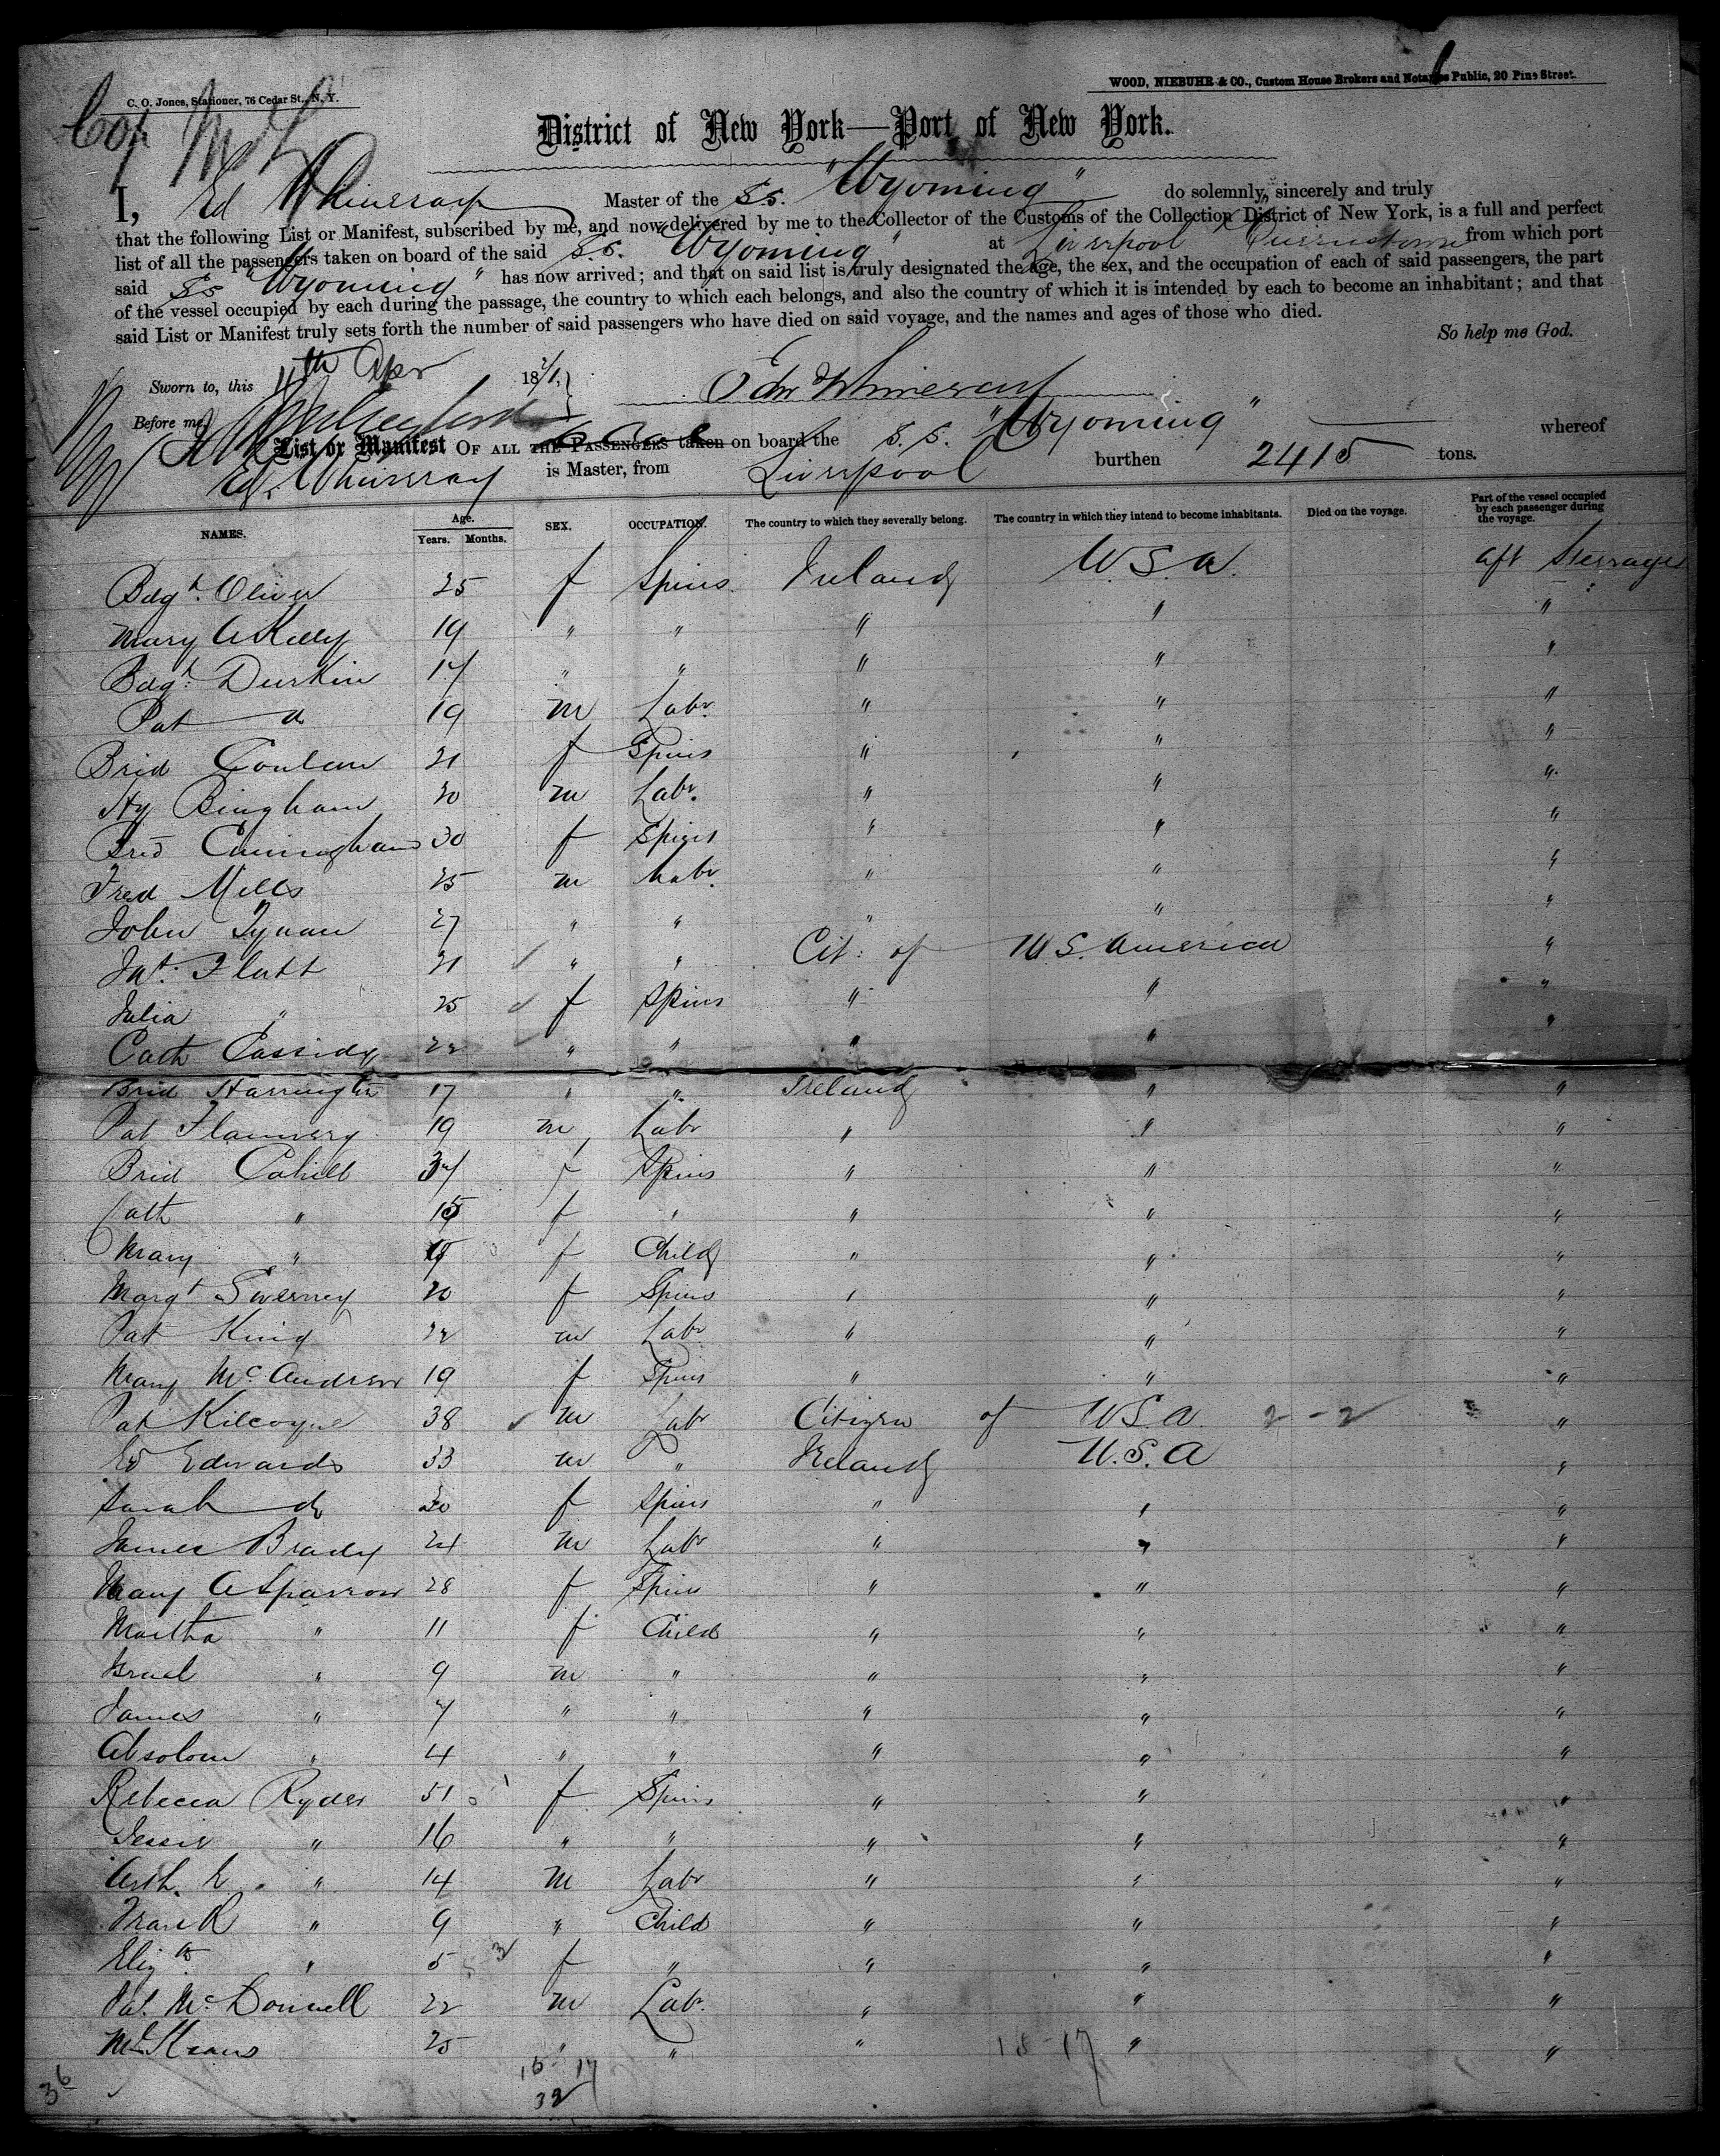 C. O. Jones, Stationer, 76 Cedar St., N. Y.
WOOD, NIEBUHR & CO., Custom House Brokers and Notaries Public, 20 Pine Street.
District of New York—Port of New York.
I, Ed Whineray Master of the S.S. "Wyoming" do solemnly, sincerely and truly
that the following List or Manifest, subscribed by me, and now delivered by me to the Collector of the Customs of the Collection District of New York, is a full and perfect
list of all the passengers taken on board of the said S.S. "Wyoming" at Liverpool Queenstown from which port
said SS "Wyoming" has now arrived; and that on said list is truly designated the age, the sex, and the occupation of each of said passengers, the part
of the vessel occupied by each during the passage, the country to which each belongs, and also the country of which it is intended by each to become an inhabitant; and that
said List or Manifest truly sets forth the number of said passengers who have died on said voyage, and the names and ages of those who died.
So help me God.
Sworn to, this 11th Apr 18
Edw Whineray
Before me,
List or Manifest OF ALL THE PASSENGERS taken on board the S.S. "Wyoming" whereof
Ed. Whineray is Master, from Liverpool burthen 2415 tons.
NAMES. Age. Years. Months. SEX. OCCUPATION. The country to which they severally belong. The country in which they intend to become inhabitants. Died on the voyage. Part of the vessel occupied by each passenger during the voyage.
Bdgt. Oliver 25 f Spins. Ireland U.S.A. aft Steerage
Mary A Kelly 19 " " " " "
Bdgt. Durkin 17 " " " " "
Pat do 19 m Labr. " " "
Brid 21 f Spins " " "
Hy Bingham 20 m Labr. " " "
Brid Cuningham 30 f Spins " " "
Fred Mills 25 m Labr. " " "
John Tynan 27 " " " " "
Flatt 21 " " Cit: of U.S. America "
Julia " 25 f Spins " " "
Cath Cassidy 22 " " " " "
Brid Harrington 17 " " Ireland " "
Pat Flannery 19 m Labr " " "
Brid Cahill 37 f Spins " " "
Cath " 15 f " " " "
Mary " f Child " " "
Margt Sweeney 20 f Spins " " "
Pat King 22 m Labr " " "
Mary McAndrew 19 f Spins " " "
Pat Kilcoyne 38 m Labr Citizen of U S A 2-2 "
Ed Edwards 33 m " Ireland U.S.A "
Sarah do 30 f Spins " " "
James Brady 24 m Labr " " "
Mary A Sparrow 28 f Spins " " "
Martha " 11 f Child " " "
Israel " 9 m " " " "
James " 7 " " " " "
Absolom " 4 " " " " "
Rebecca Ryder 51 f Spins " " "
Jessie " 16 " " " " "
Arth. E " 14 m Labr " " "
Frank " 9 " Child " " "
Elizth " 5 f " " " "
Pat. McDonnell 22 m Labr. " " "
Ml Keane 25 " " " 15-17 " "
15 17
32
36